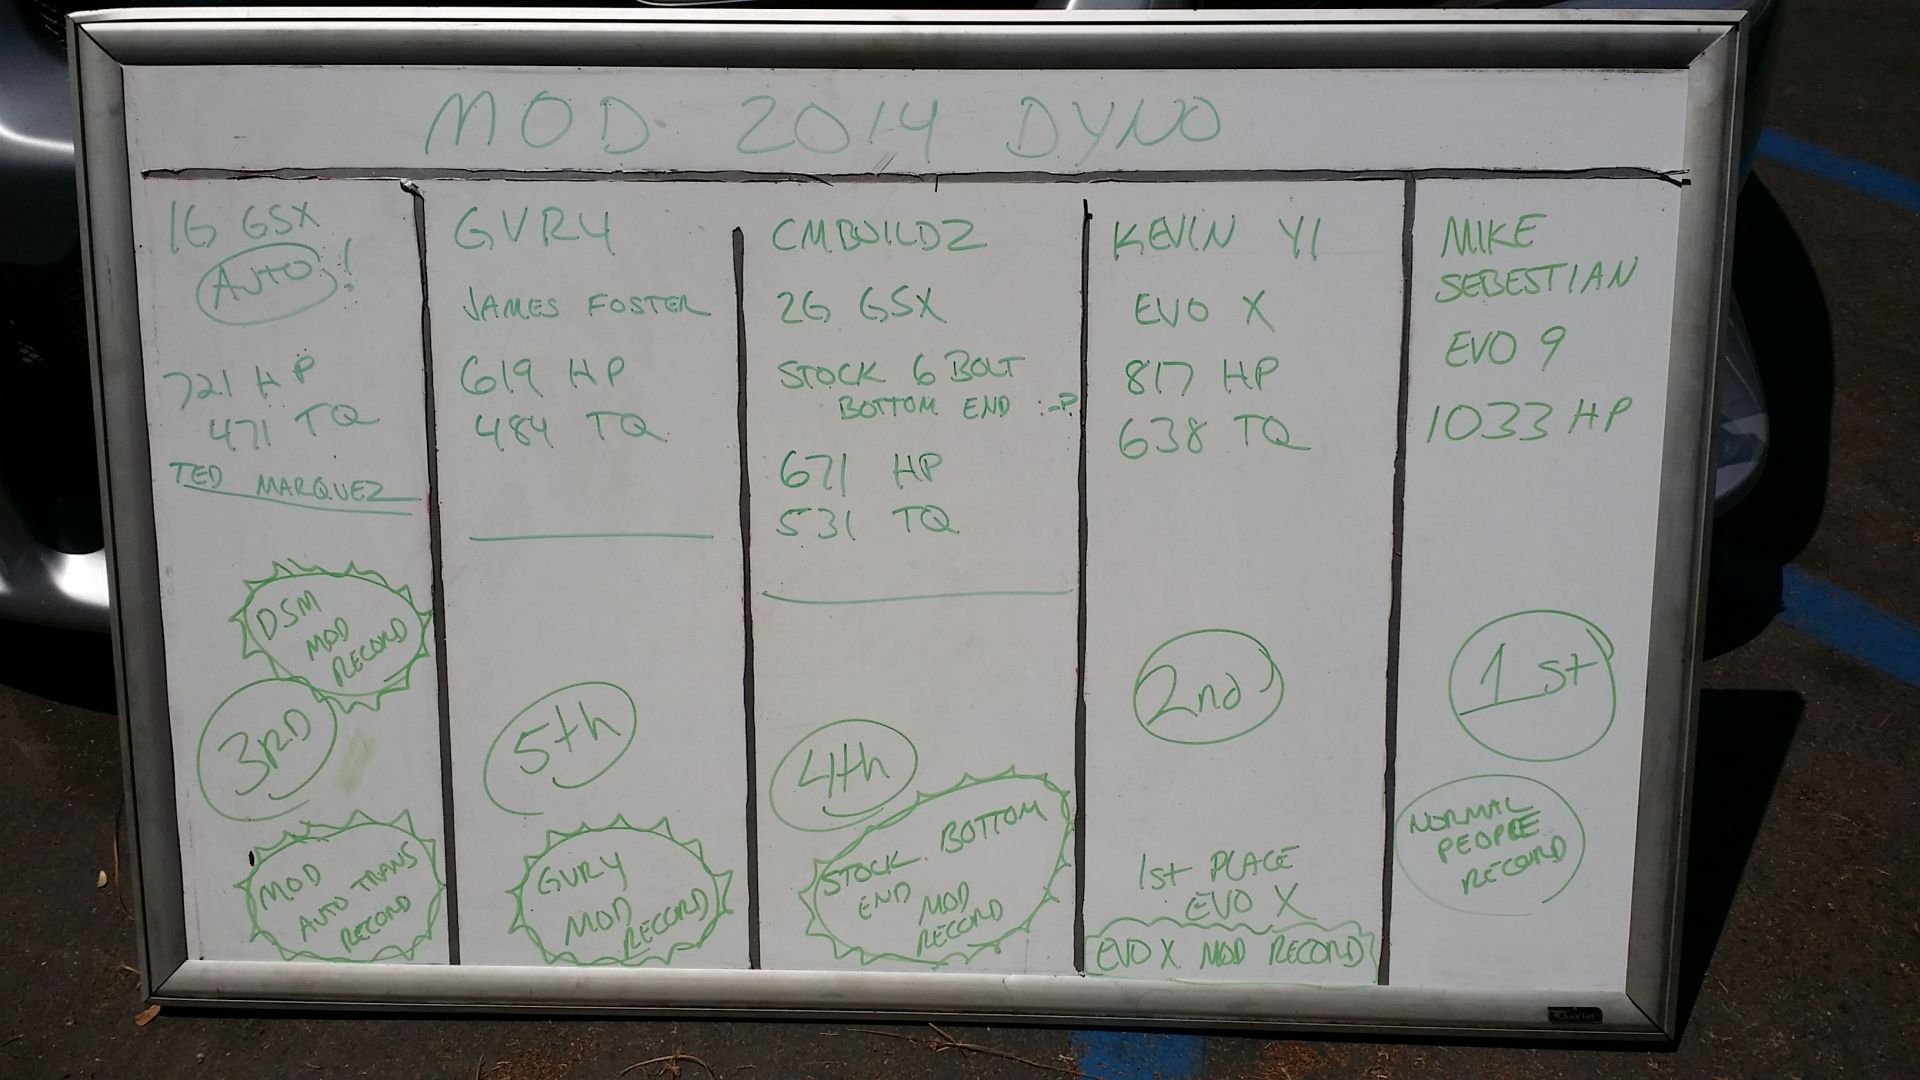 MOD 2014 DYNO
1G GSX
AUTO!
721 HP
471 TQ
TED MARQUEZ
DSM
MOD
RECORD
3RD
MOD
AUTO TRANS
RECORD
GVR4
JAMES FOSTER
619 HP
484 TQ
5th
GVR4
MOD
RECORD
CMBUILDZ
2G GSX
STOCK 6 BOLT
BOTTOM END :-P
671 HP
531 TQ
4th
STOCK BOTTOM
END MOD
RECORD
KEVIN YI
EVO X
817 HP
638 TQ
2nd
1st PLACE
EVO X
EVO X MOD RECORD
MIKE
SEBESTIAN
EVO 9
1033 HP
1st
NORMAL
PEOPLE
RECORD
Quartet